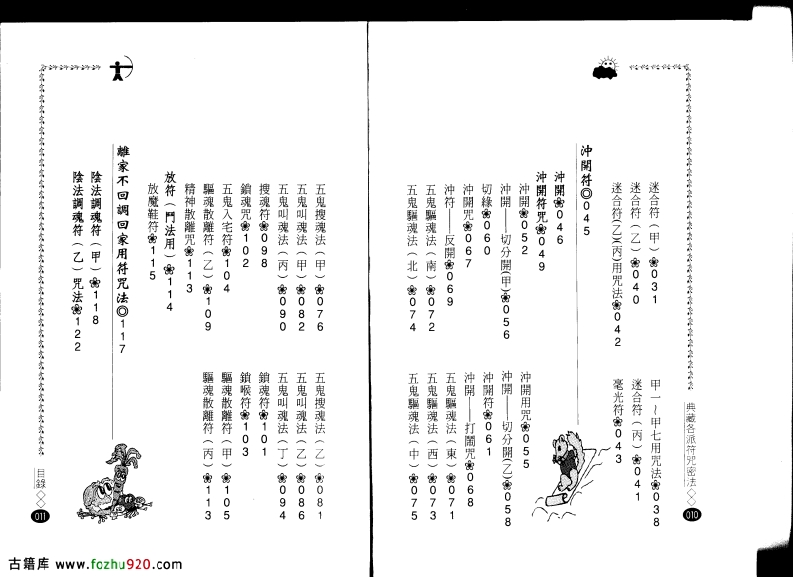 典藏各派符咒密法◇◇010
迷合符（甲）❀031
甲一～甲七用咒法❀038
迷合符（乙）❀040
迷合符（丙）❀041
迷合符(乙)(丙)用咒法❀042
毫光符❀043
沖開符◎045
沖開❀046
沖開符咒❀049
沖開❀052
沖開用咒❀055
沖開——切分開(甲)❀056
沖開——切分開(乙)❀058
切緣❀060
沖開符❀061
沖開咒❀067
沖開——打鬧咒❀068
沖符——反開❀069
五鬼驅魂法（東）❀071
五鬼驅魂法（南）❀072
五鬼驅魂法（西）❀073
五鬼驅魂法（北）❀074
五鬼驅魂法（中）❀075
五鬼搜魂法（甲）❀076
五鬼搜魂法（乙）❀081
五鬼叫魂法（甲）❀082
五鬼叫魂法（乙）❀086
五鬼叫魂法（丙）❀090
五鬼叫魂法（丁）❀094
搜魂符❀098
鎖魂符❀101
鎖魂咒❀102
鎖喉符❀103
五鬼入宅符❀104
驅魂散離符（甲）❀105
驅魂散離符（乙）❀109
驅魂散離符（丙）❀113
精神散離咒❀113
放符（鬥法用）❀114
放魔鞋符❀115
離家不回調回家用符咒法◎117
陰法調魂符（甲）❀118
陰法調魂符（乙）咒法❀122
目錄◇◇011
古籍库 www.fozhu920.com